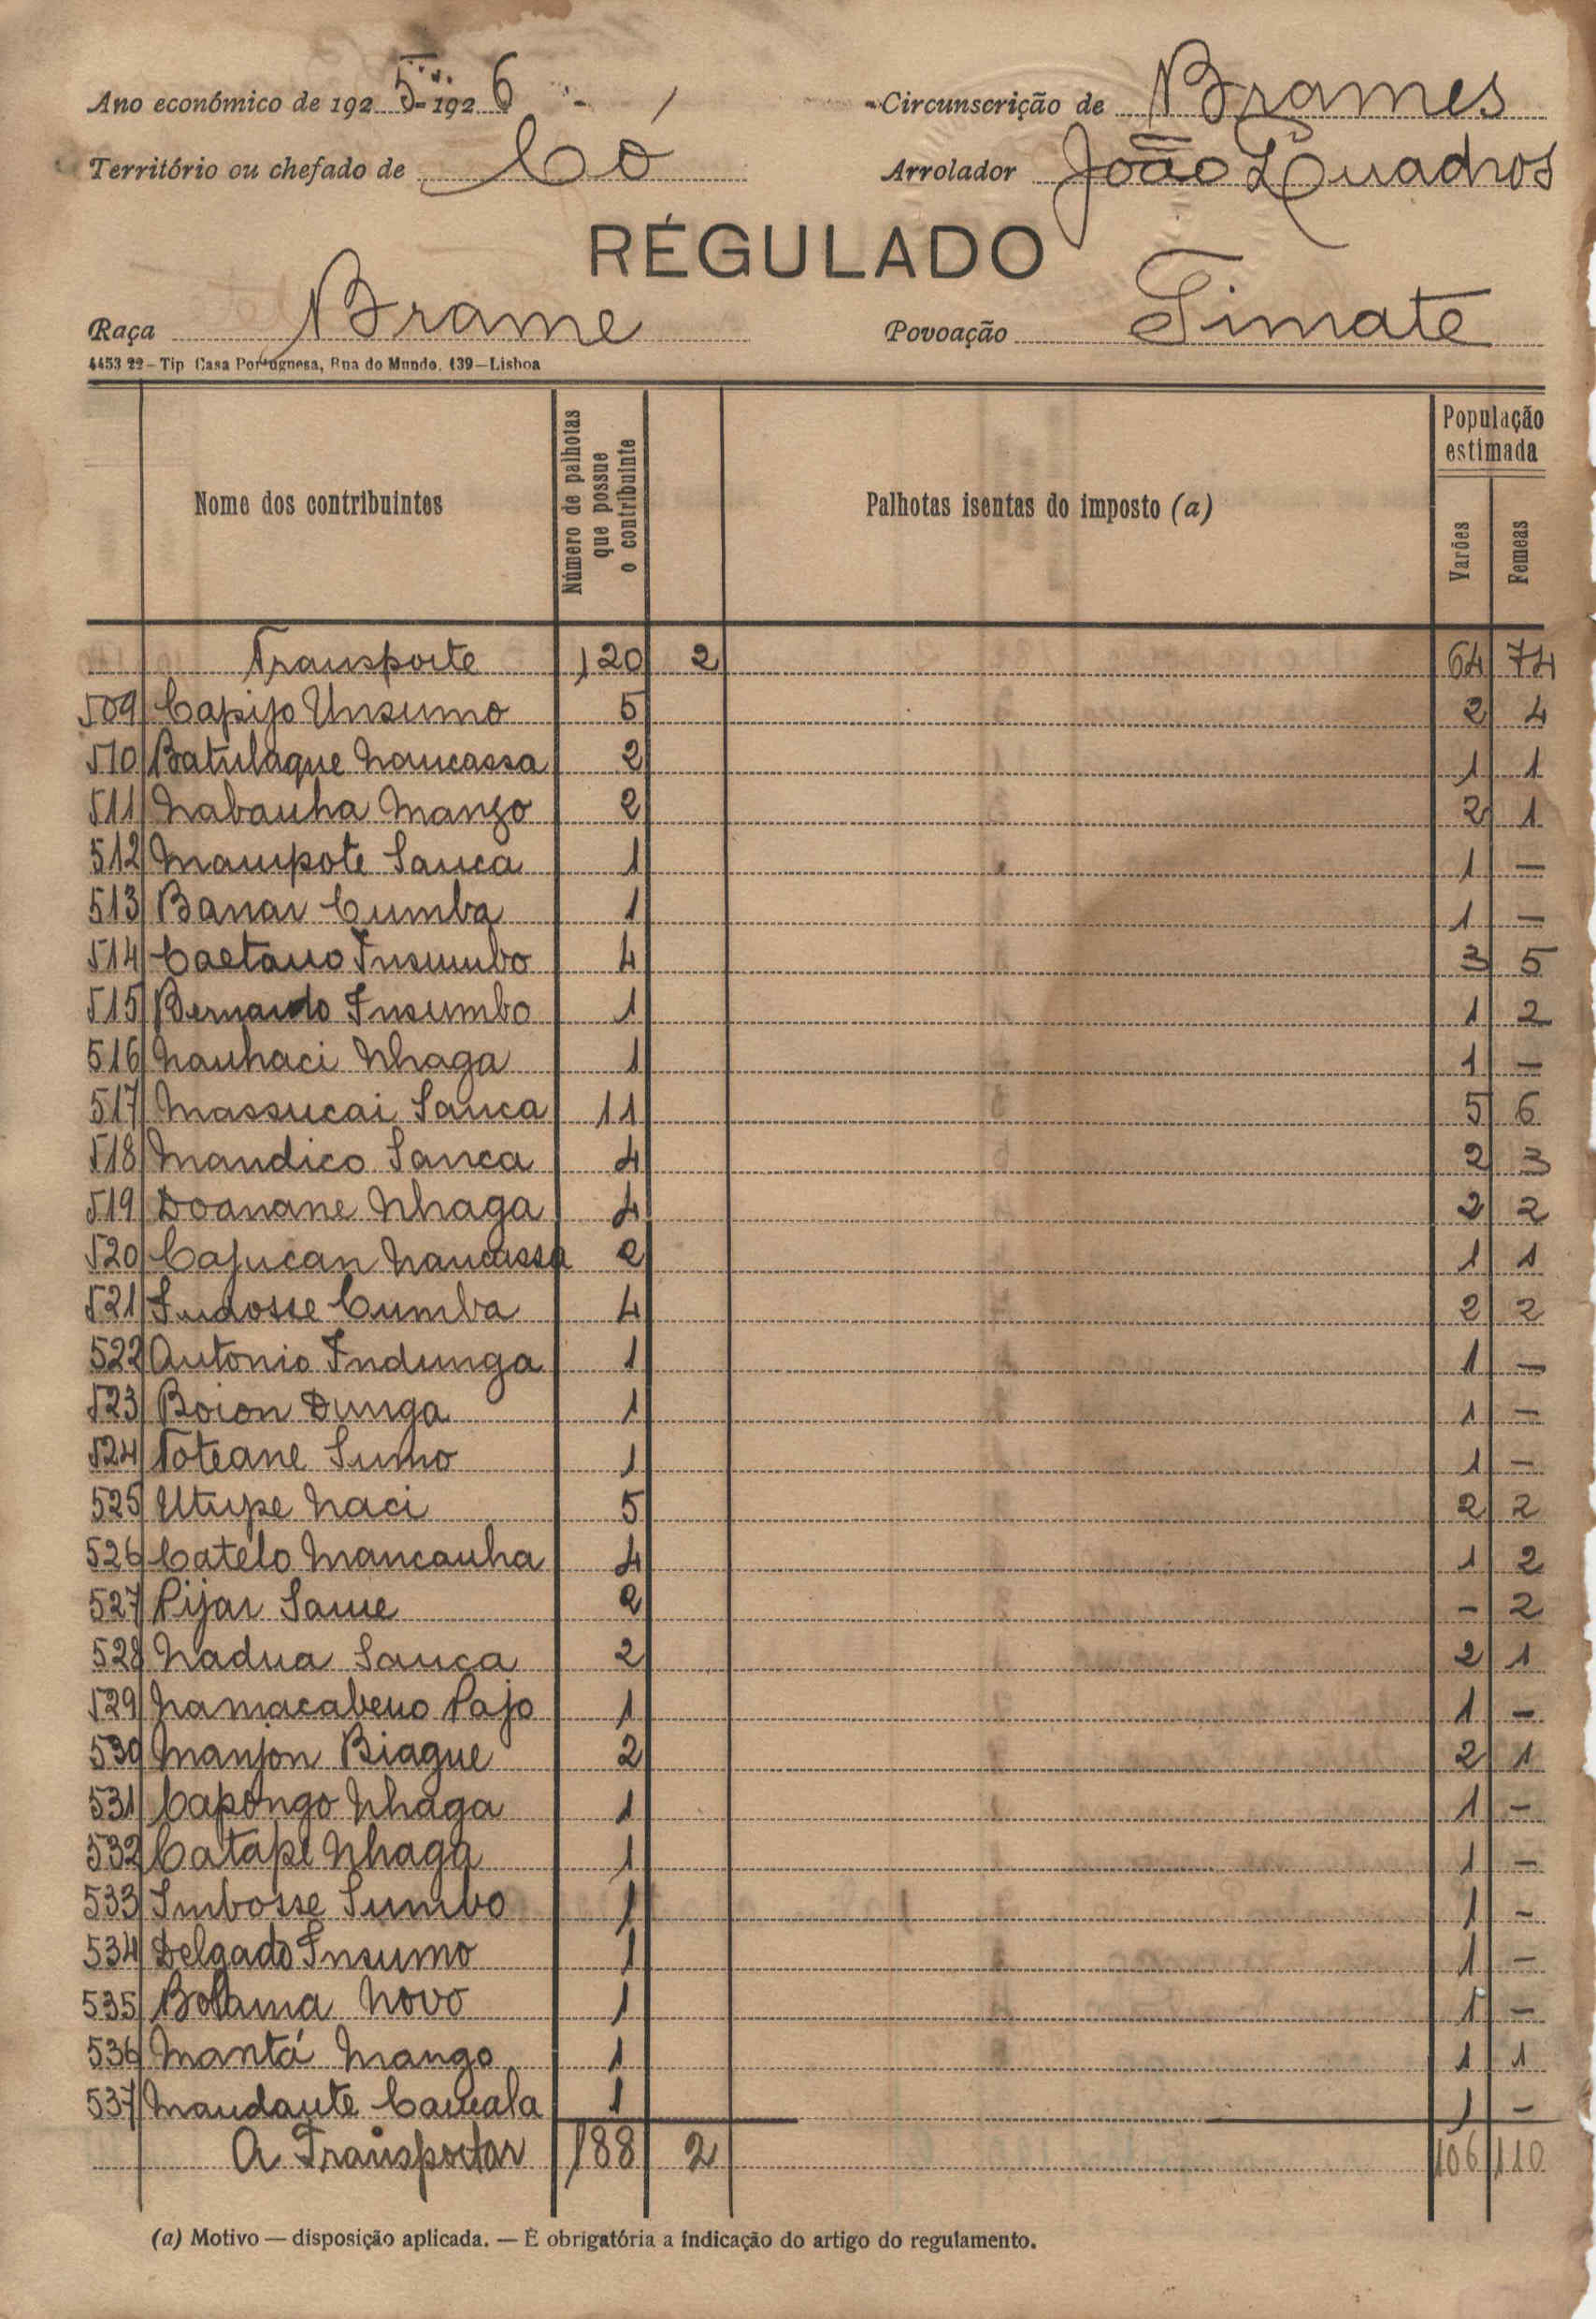 Ano económico de 1925-1926
Circunscrição de Brames
Território ou chefado de Có
Arrolador João Quadros
RÉGULADO
Raça Brame
Povoação Timate
4453 22 – Tip Casa Portuguesa, Rua do Mundo, 139 – Lisboa
Nome dos contribuintes
Número de palhotas que possue o contribuinte
Palhotas isentas do imposto (a)
População estimada
Varões
Femeas
Transporte 120 2 64 74
509 Capijo Unsumo 5 2 4
510 Batulaque Nancassa 2 1 1
511 Nabanha Mango 2 2 1
512 Mampote Sanca 1 1 —
513 Banar Cumba 1 1 —
514 Caetano Insumbo 4 3 5
515 Bernardo Insumbo 1 1 2
516 Nanhaci Nhaga 1 1 —
517 Massucai Sanca 11 5 6
518 Mandico Sanca 4 2 3
519 Doanane Nhaga 4 2 2
520 Cajucan Nancassa 2 1 1
521 Indosse Cumba 4 2 2
522 Antonio Indunga 1 1 —
523 Boion Dunga 1 1 —
524 Toteane Sumo 1 1 —
525 Utupe Naci 5 2 2
526 Catelo Mancanha 4 1 2
527 Pijar Same 2 - 2
528 Nadua Sanca 2 2 1
529 Namacabeno Pajo 1 1 —
530 Manjon Biague 2 2 1
531 Capongo Nhaga 1 1 —
532 Catape Nhaga 1 1 —
533 Imbosse Sumbo 1 1 -
534 Delgado Insumo 1 1 —
535 Bolama Novo 1 1 —
536 Mantá Mango 1 1 1
537 Mandante Cancala 1 1 —
A Transportar 188 2 106 110
(a) Motivo — disposição aplicada. — É obrigatória a indicação do artigo do regulamento.